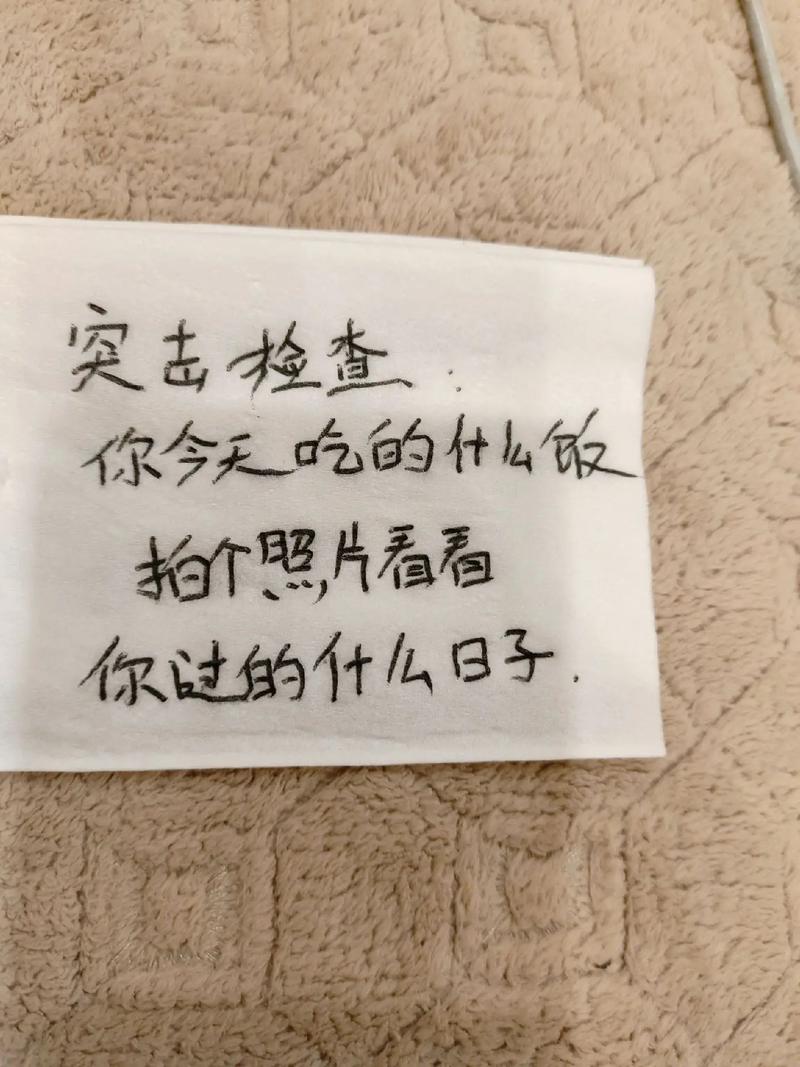 突击检查.
你今天吃的什么饭
拍个照片看看
你过的什么日子.